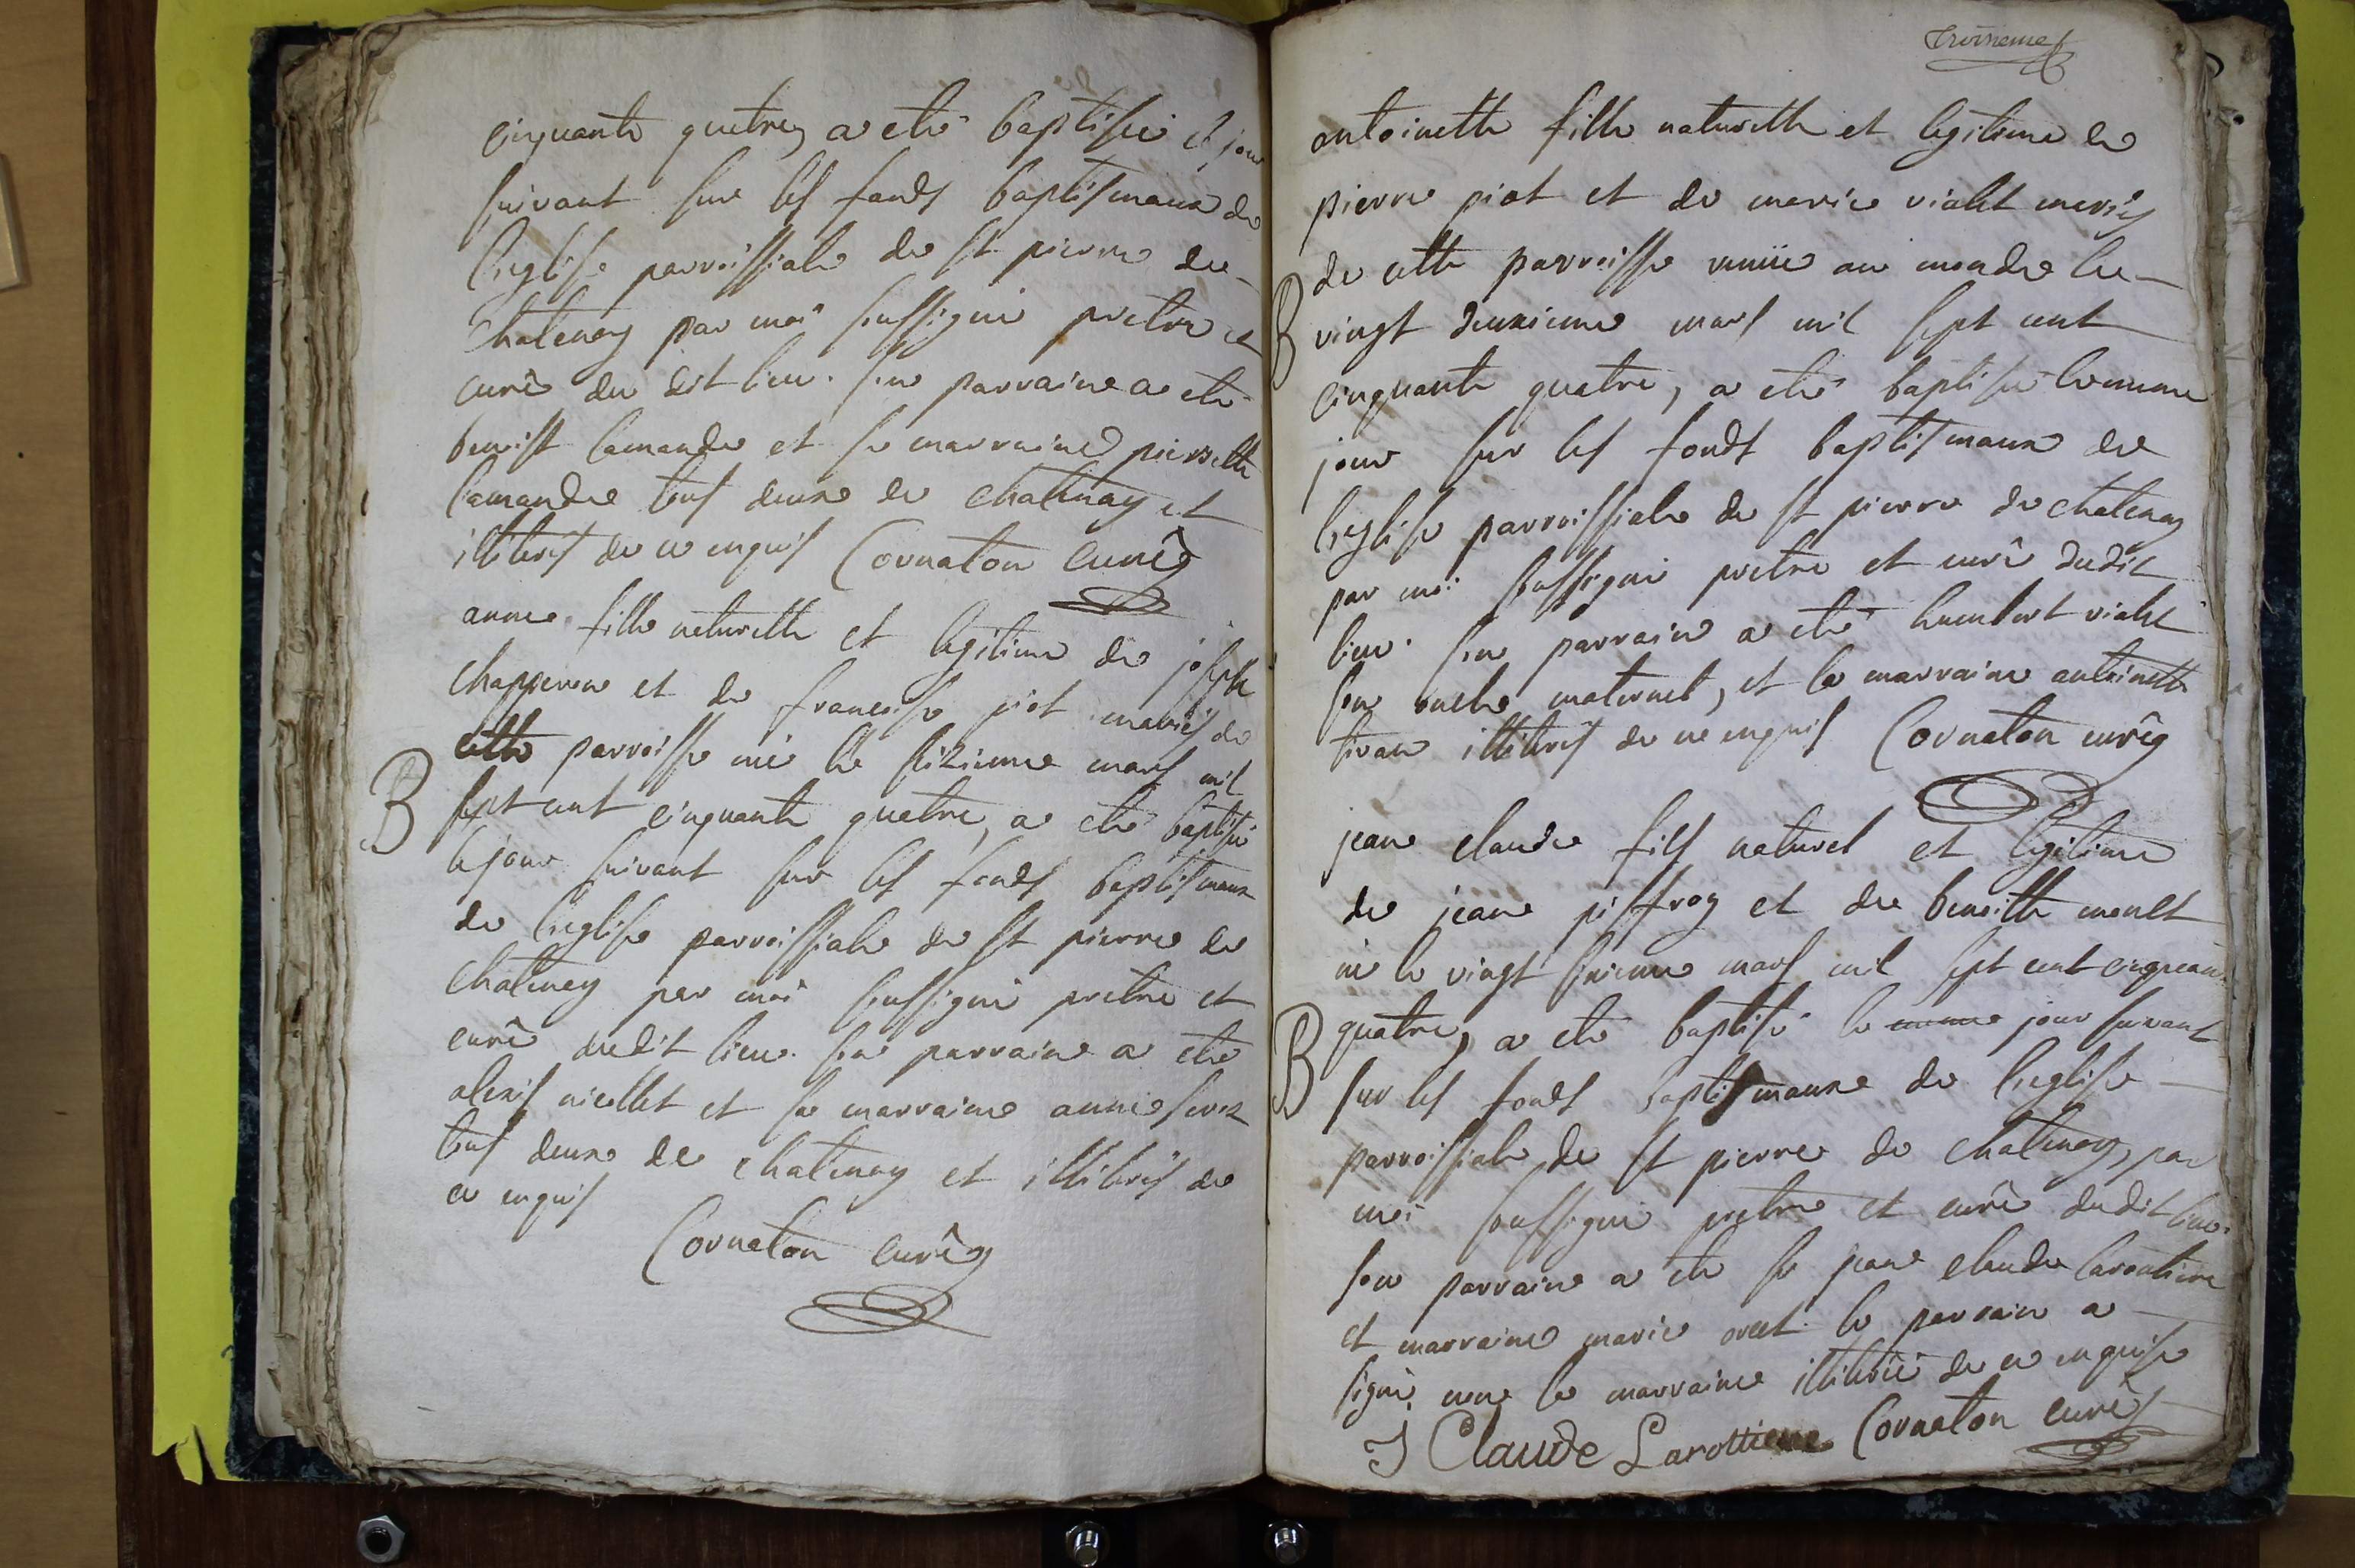 cinquante quatre, a eté baptisée le jour
suivant sur les fonds baptismaux de
l'eglise parroissiale de st pierre de
Chatenay par moi soussigné pretre et
curé du dit lieu. son parrain a eté
benoist lamandre et sa marraine pierrette
lamandre tous deux de chatenay et
illiterés de ce enquis Cornaton curé
anne fille naturelle et legitime de joseph
chapperon et de francoise piot mariés de
cette parroisse née le seizieme mars mil
B sept cent cinquante quatre, a eté baptisée
le jour suivant sur les fonds baptismaux
de l'eglise parroissiale de st pierre de
chatenay par moi soussigné pretre et
curé dudit lieu. son parrain a eté
alexis niollet et sa marraine anne
tous deux de chatenay et illiterés de
ce enquis
Cornaton curé
troisieme
antoinette fille naturelle et legitime de
pierre piot et de marie violet mariés
de cette parroisse venüe au monde le
B vingt deuxieme mars mil sept cent
cinquante quatre, a eté baptisée le meme
jour sur les fonds baptismaux de
l'eglise parroissiale de st pierre de chatenay
par moi soussigné pretre et curé dudit
lieu. son parrain a eté humbert violet
son oncle maternel, et la marraine antoinette
illiterés de ce enquis Cornaton curé
jean claude fils naturel et legitime
de jean piffroy et de benoitte monet
né le vingt sixieme mars mil sept cent cinquante
B quatre, a eté baptisé le meme jour suivant
sur les fonds baptismaux de l'eglise
parroissiale de st pierre de chatenay, par
moi soussigné pretre et curé dudit lieu.
son parrain a eté sr jean claude larotiere
et marraine marie le parrain a
signé non la marraine illiterée de ce enquise
J Claude Larottiere Cornaton curé